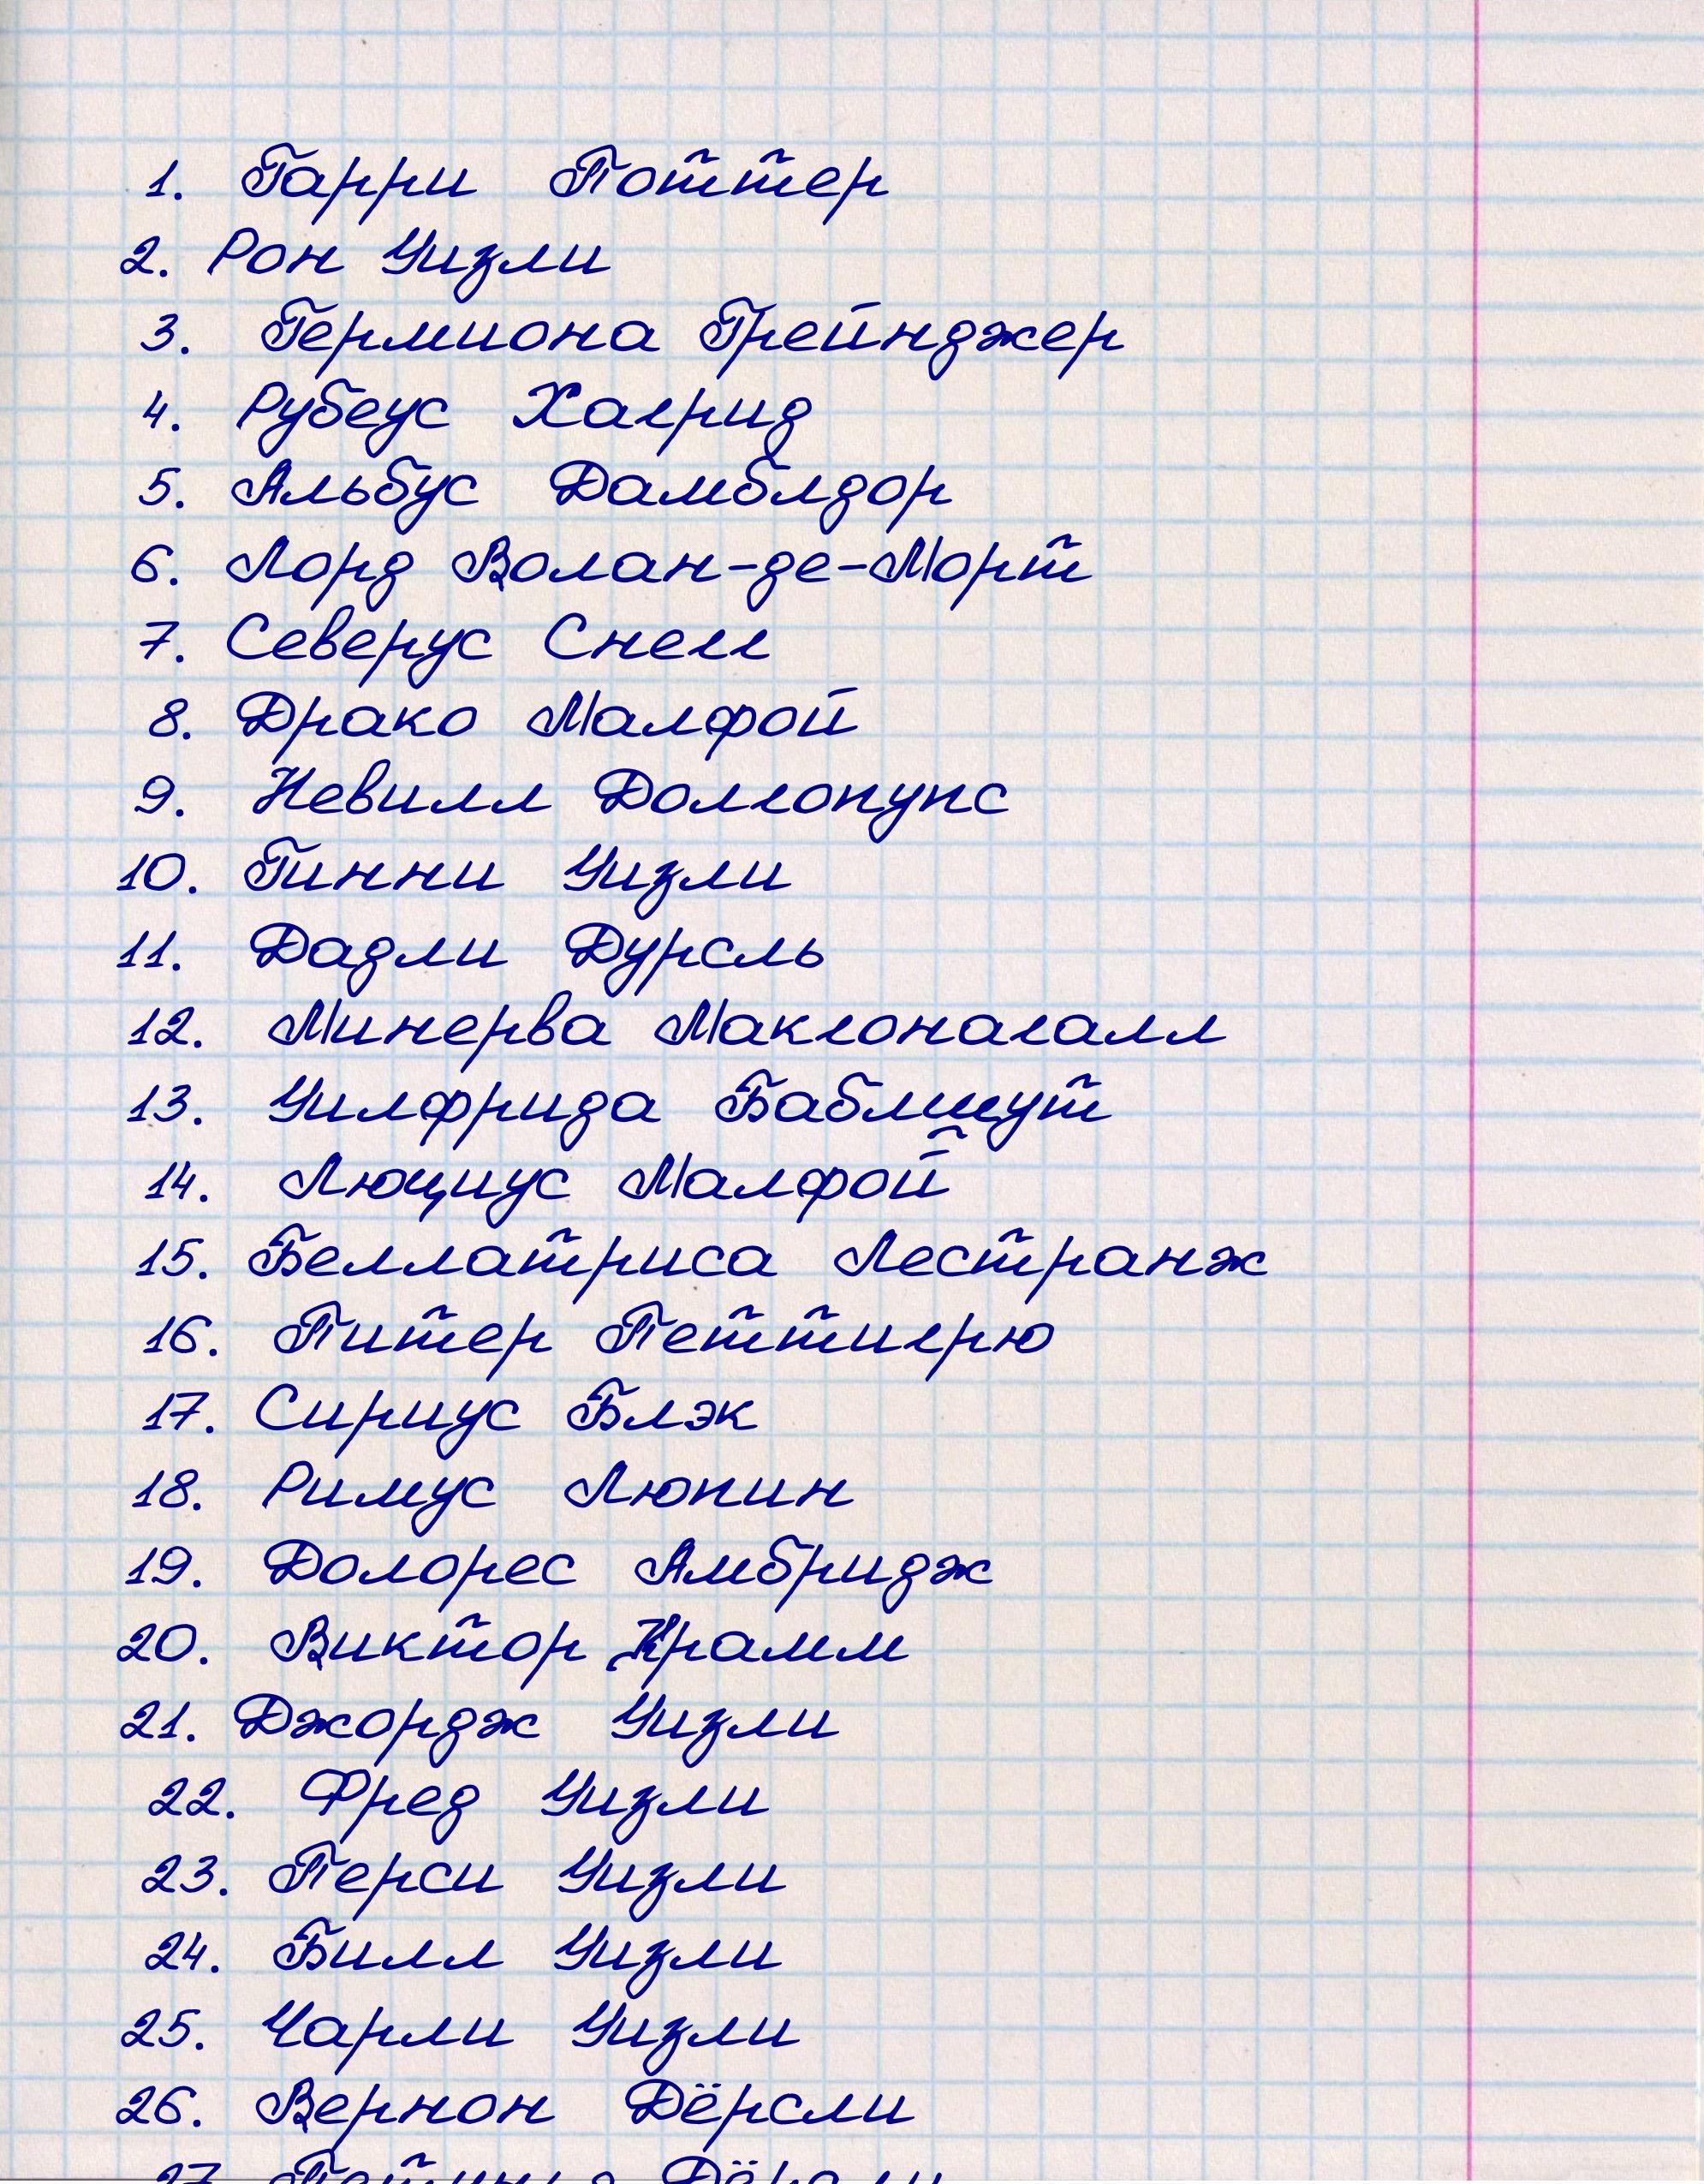 1. Гарри Поттер
2. Рон Уизли
3. Гермиона Грейнджер
4. Рубеус Хагрид
5. Альбус Дамблдор
6. Лорд Волан-де-Морт
7. Северус Снегг
8. Драко Малфой
9. Невилл Долгопупс
10. Гинни Уизли
11. Дадли Дурсль
12. Минерва Макгонагалл
13. Уилфрида
14. Люциус Малфой
15. Беллатриса Лестранж
16. Питер Петтигрю
17. Сириус Блэк
18. Римус Люпин
19. Долорес Амбридж
20. Виктор Крамм
21. Джордж Уизли
22. Фред Уизли
23. Перси Уизли
24. Билл Уизли
25. Чарли Уизли
26. Вернон Дёрсли